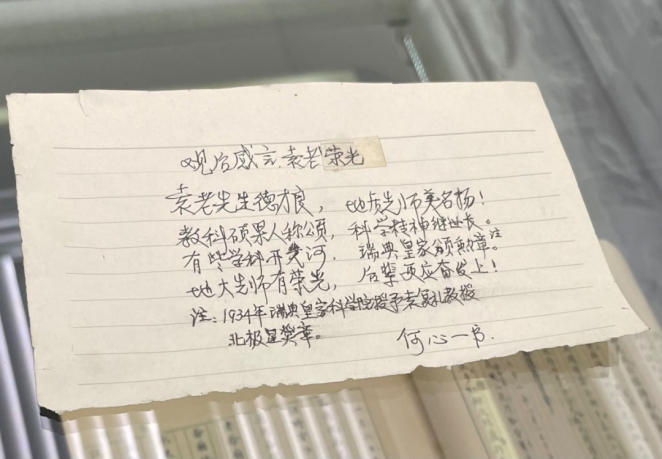 观后感言袁老荣光
袁老先生德艰，地质先师美名扬！
教科硕果人称颂，科学精神继世长。
有些学科开先河，瑞典皇家颁勋章。注
地大先师有荣光，后辈更应奋发上！
注：1934年瑞典皇家科学院授予袁复礼教授
北极星奖章。
何心一书.